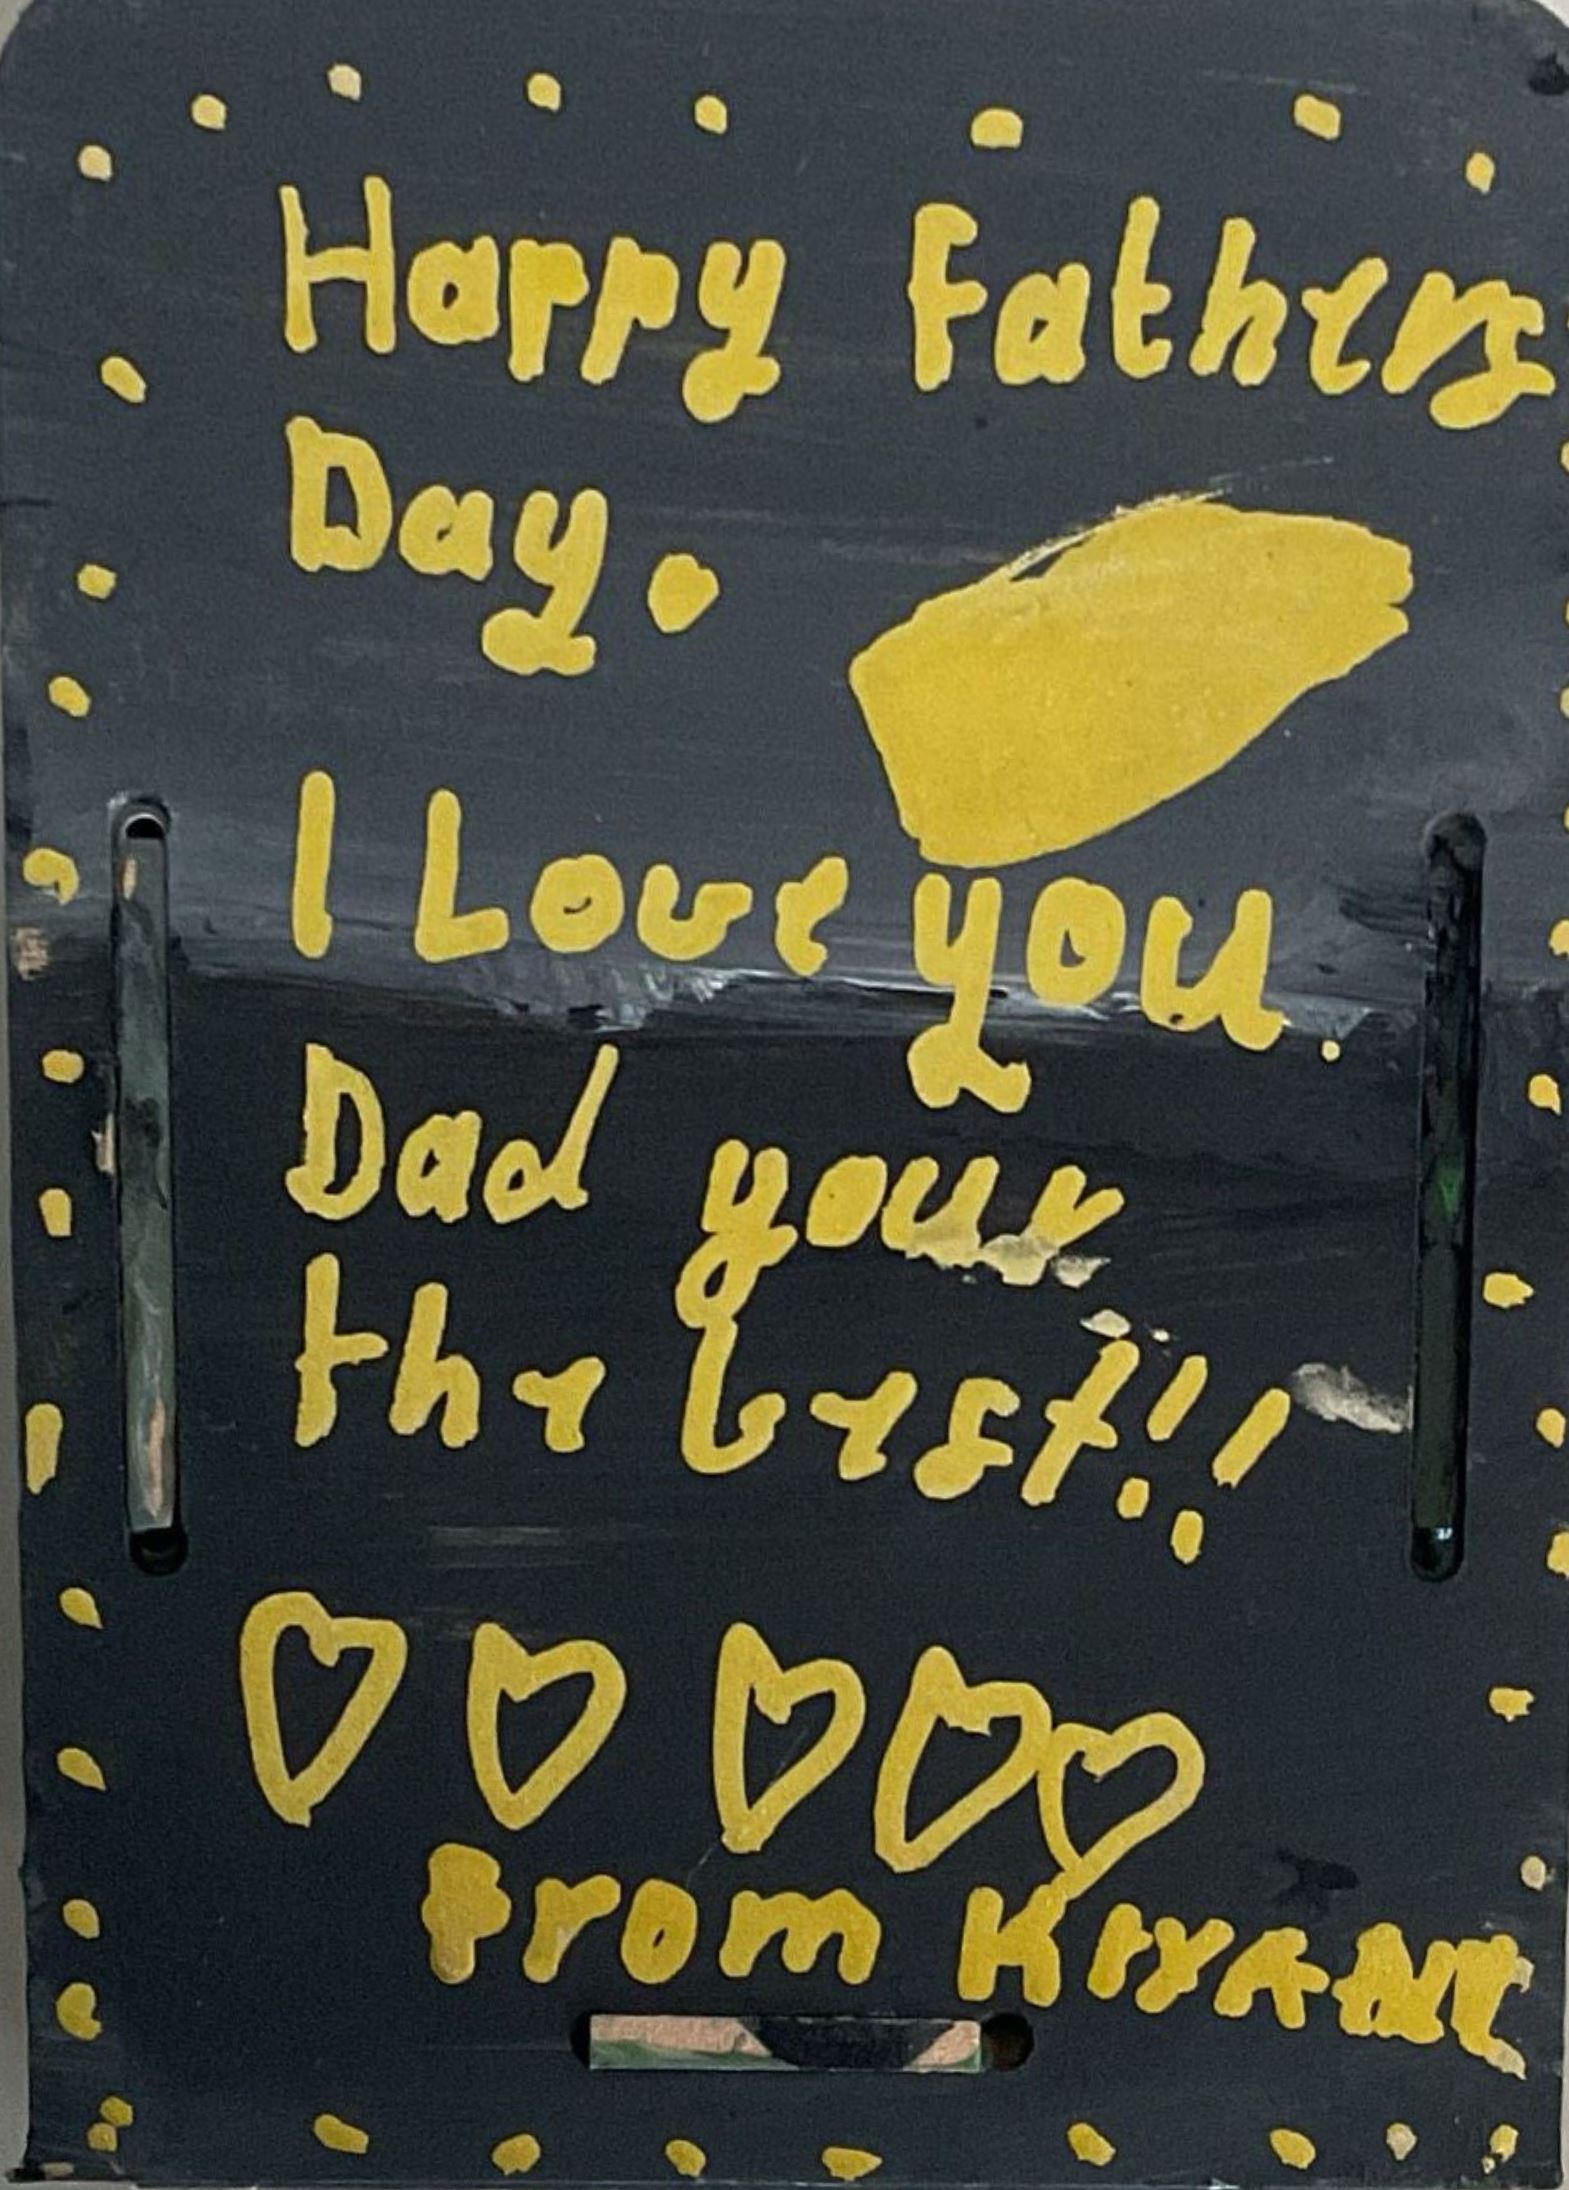 Happy Fathers
Day.
I Love you.
Dad your
the best!!
From